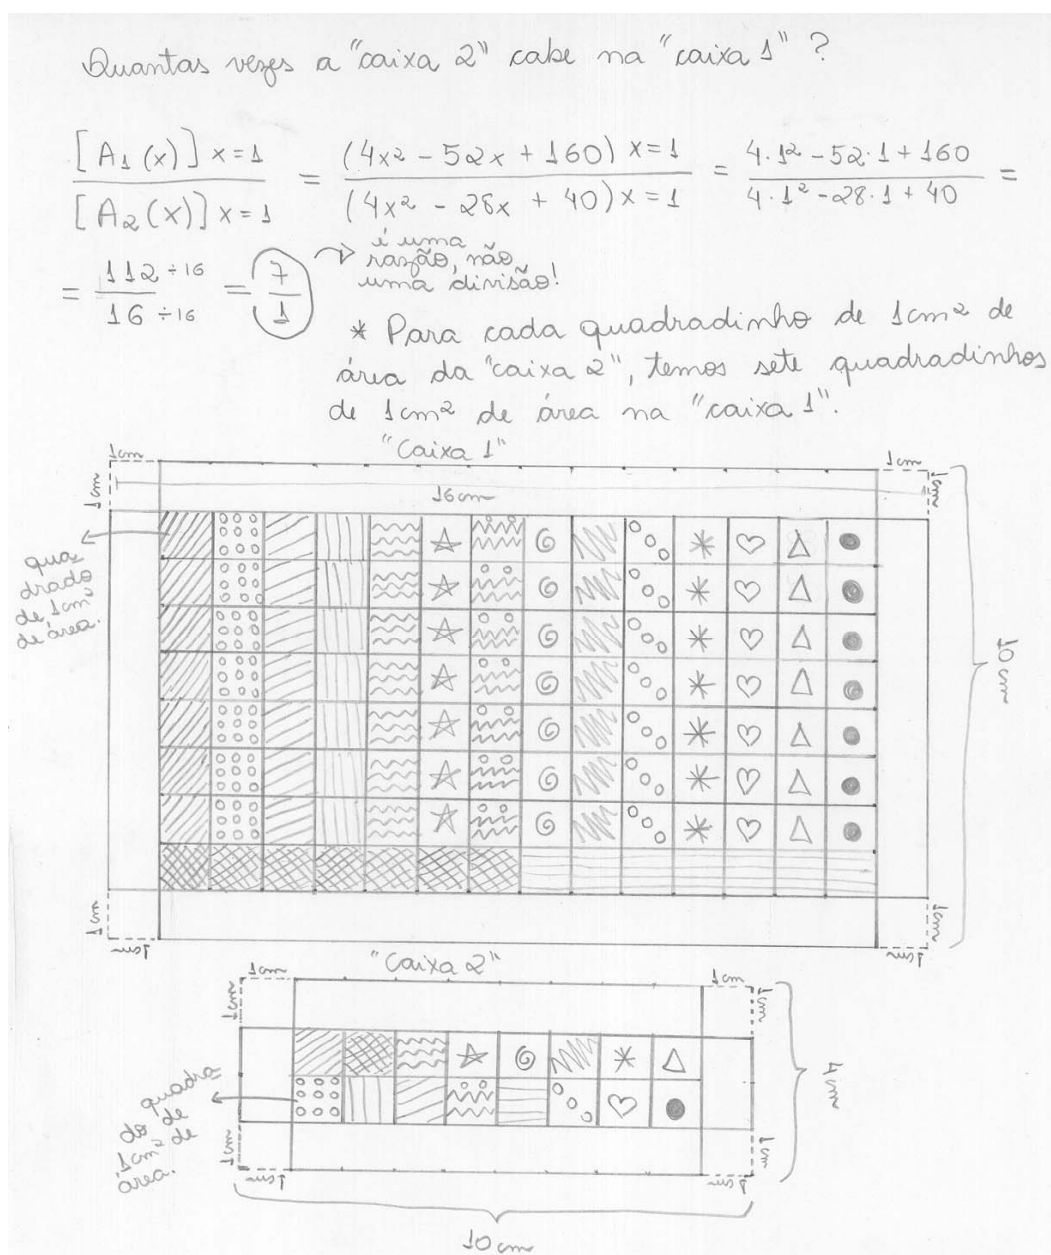 Quantas vezes a "caixa 2" cabe na "caixa 1" ?
[A₁(x)] x=1 / [A₂(x)] x=1 = (4x² - 52x + 160) x=1 / (4x² - 28x + 40) x=1 = 4·1² - 52·1 + 160 / 4·1² - 28·1 + 40 =
= 112 ÷16 / 16 ÷16 = 7 / 1
é uma
razão, não
uma divisão!
* Para cada quadradinho de 1cm² de
área da "caixa 2", temos sete quadradinhos
de 1cm² de área na "caixa 1".
"Caixa 1"
1cm
1cm
1cm
1cm
16cm
qua
drado
de 1cm²
de área.
10cm
1cm
1cm
1cm
1cm
"Caixa 2"
1cm
1cm
1cm
1cm
4cm
quadra
do de
1cm² de
área.
1cm
1cm
1cm
1cm
10cm